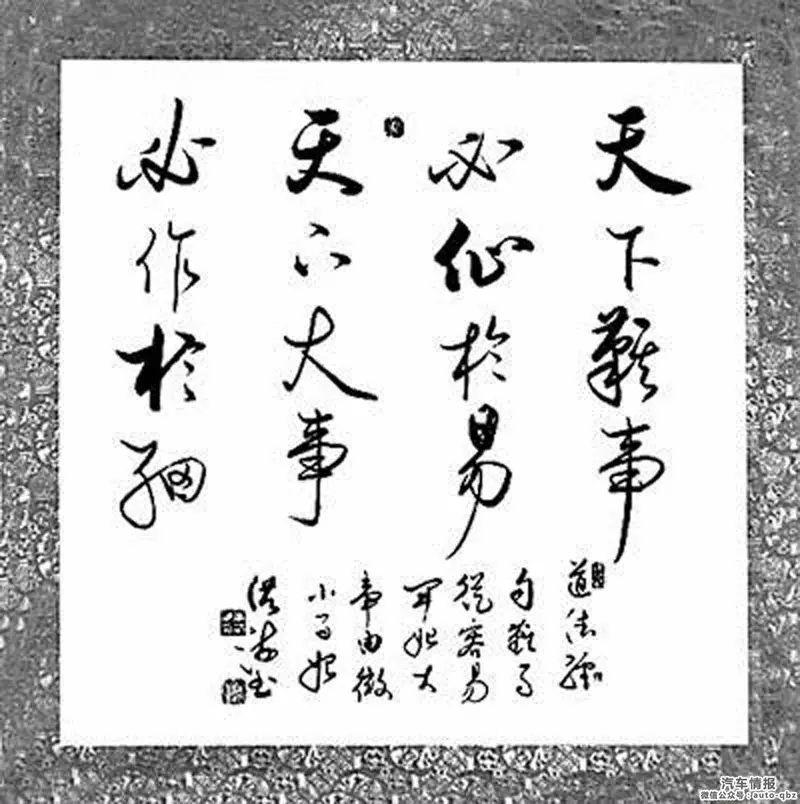 天下難事
必作於易
天下大事
必作於細
道德經
句難事
從容易
開始大
事由微
小始
汽车情报
微信公众号:auto-qbz